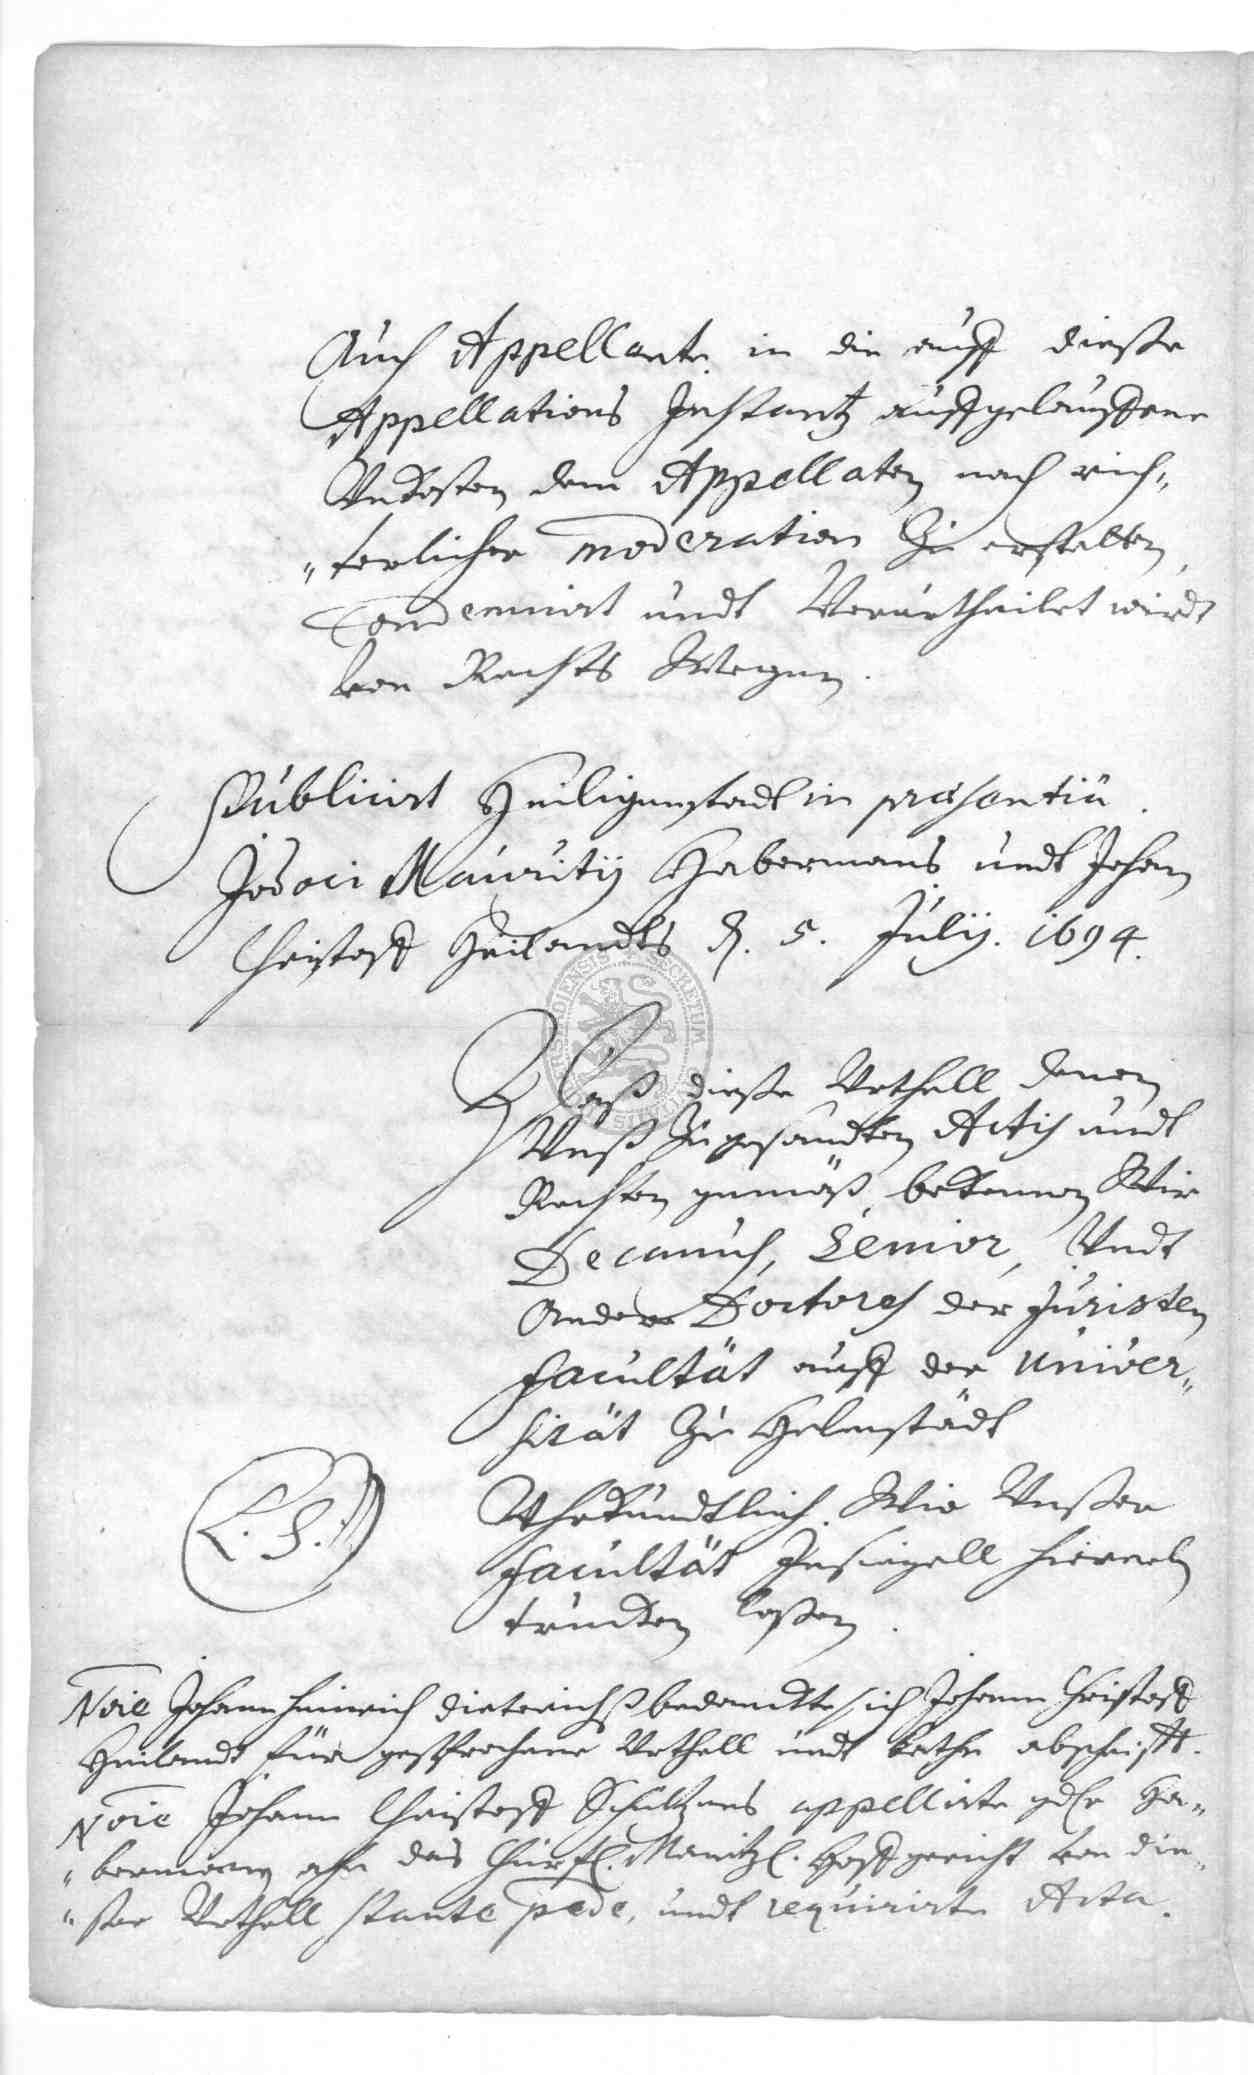 Auch Appellante in die auff dieße
Appellations Instantz auffgelauffene
Vnkosten dem Appellaten nach rich„
„terlicher moderation zu erstatten,
Condemnirt undt Verurtheilet wirdt
von Rechts Wegen.
Publicirt Heiligenstadt in præsentia
Jodoci Mauritij Habermans undt Johan
Christoff Heilandts d. 5. Julij. 1694.
Daß dieße Vrthell denen
Vnß zugesandten Actis undt
Rechten gemäß, bekennen Wir
Decanus, Senior, Vndt
Andere Doctores der Juristen
Facultät auff der Univer„
sität zu Helmstädt
Vhrkundtlich. Wir Vnßer
Facultät Insiegell hierauf
trucken laßen.
L. S.
Noie Johann Heinrich Dieterichß bedanckte sich Johann Christoff
Heilandt für gesprochene Vrthell undt bathe abschrifft.
Noie Johann Christoff Schultzens appellirte gdr Ha„
„bermann ahn das Churfl. Maintzl. Hoffgericht von die„
„ser Vrthell stante pede, undt requirirte Acta.
SECRETUM